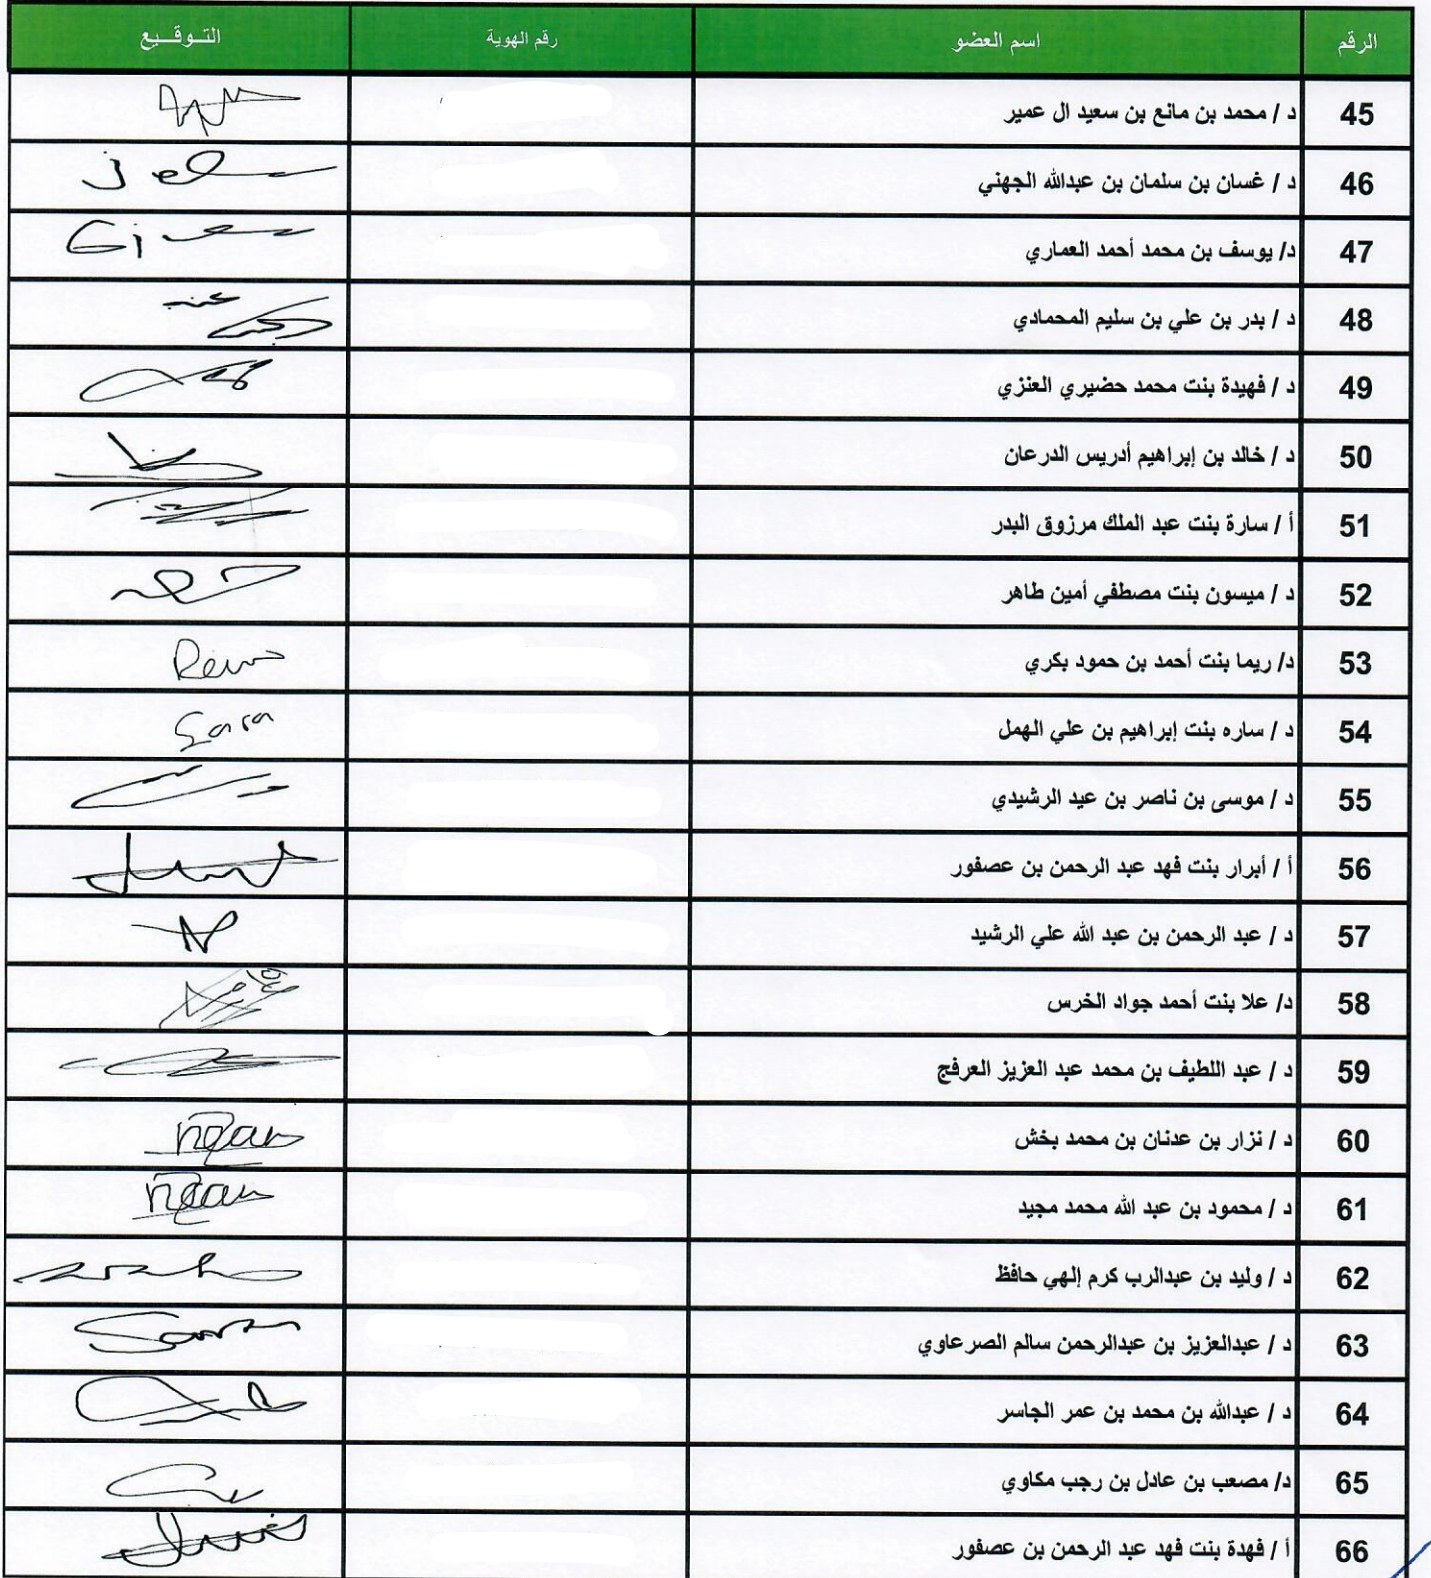 الرقم اسم العضو رقم الهوية التـوقـيع
45 د / محمد بن مانع بن سعيد ال عمير
46 د / غسان بن سلمان بن عبدالله الجهني
47 د/ يوسف بن محمد أحمد العماري
48 د / بدر بن علي بن سليم المحمادي
49 د / فهيدة بنت محمد حضيري العنزي
50 د / خالد بن إبراهيم أدريس الدرعان
51 أ / سارة بنت عبد الملك مرزوق البدر
52 د / ميسون بنت مصطفي أمين طاهر
53 د/ ريما بنت أحمد بن حمود بكري
54 د / ساره بنت إبراهيم بن علي الهمل Sara
55 د / موسى بن ناصر بن عيد الرشيدي
56 أ / أبرار بنت فهد عبد الرحمن بن عصفور
57 د / عبد الرحمن بن عبد الله علي الرشيد
58 د/ علا بنت أحمد جواد الخرس
59 د / عبد اللطيف بن محمد عبد العزيز العرفج
60 د / نزار بن عدنان بن محمد بخش
61 د / محمود بن عبد الله محمد مجيد
62 د / وليد بن عبدالرب كرم إلهي حافظ
63 د / عبدالعزيز بن عبدالرحمن سالم الصرعاوي
64 د / عبدالله بن محمد بن عمر الجاسر
65 د/ مصعب بن عادل بن رجب مكاوي
66 أ / فهدة بنت فهد عبد الرحمن بن عصفور